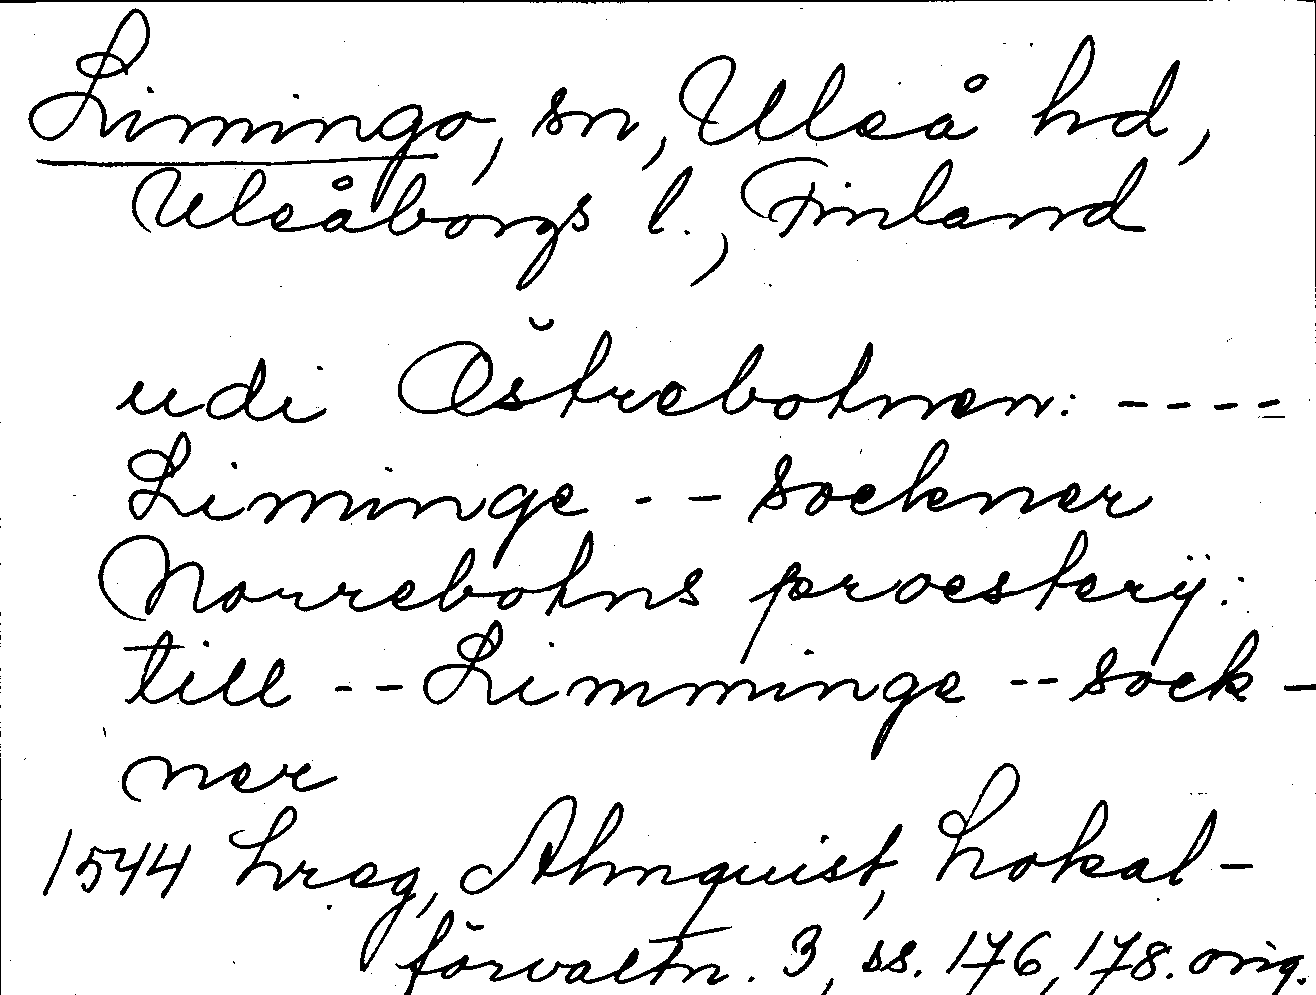 Limingo, sn, Uleå hd,
Uleåborgs l., Finland
udi Östrebotnen: ----
Liminge -- sockner
Norrebotns proesterÿ:
till -- Limminge -- sock-
ner
1544 Lreg, Almquist, Lokal-
förvaltn. 3, ss. 176, 178. orig.